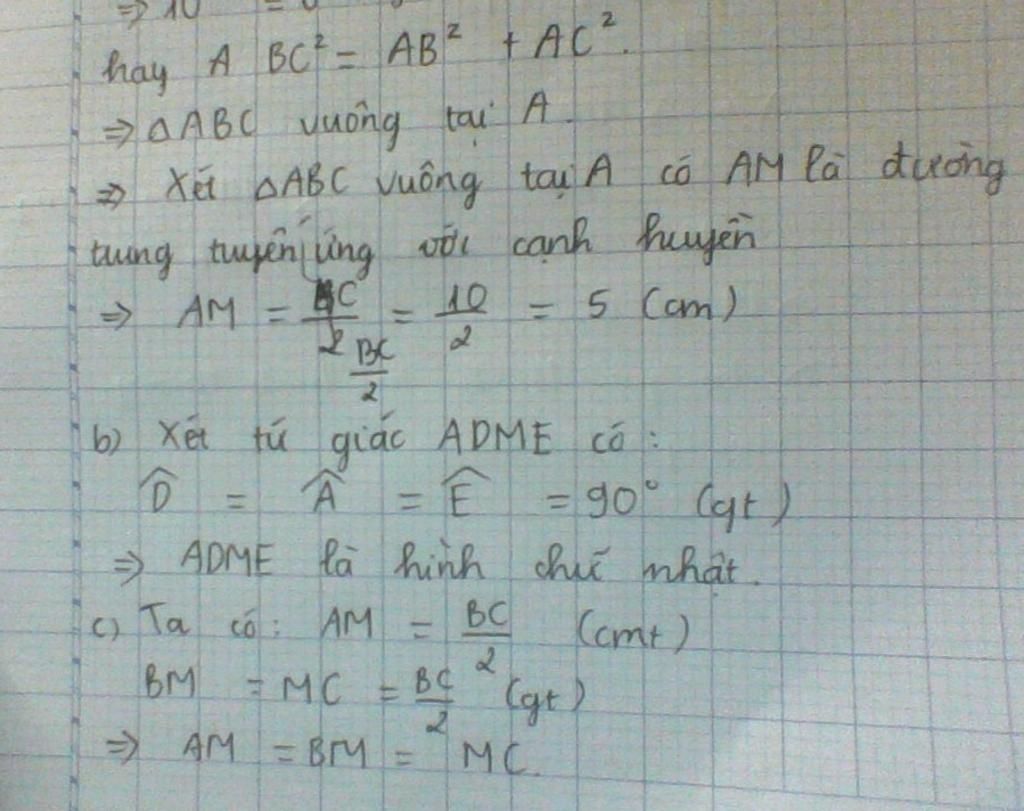 ⇒ 10
hay A BC² = AB² + AC².
⇒ △ABC vuông tại A.
⇒ Xét △ABC vuông tại A có AM là đường
trung tuyến ứng với cạnh huyền
⇒ AM = BC/2 = 10/2 = 5 (cm)
BC/2
b) Xét tứ giác ADME có:
D̂ = Â = Ê = 90° (gt)
⇒ ADME là hình chữ nhật.
c) Ta có: AM = BC/2 (cmt)
BM = MC = BC/2 (gt)
⇒ AM = BM = MC.